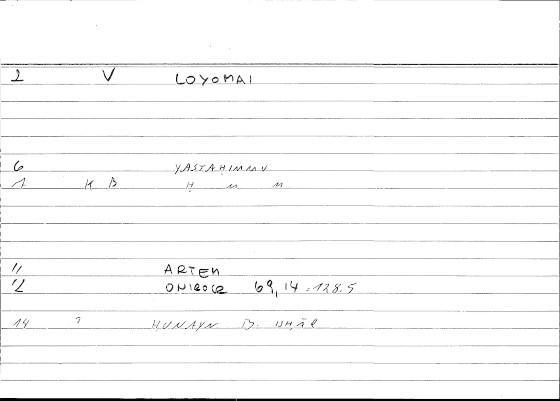 2 V LOYOMAI
6 YASTAHIMMU
1 K B Ḥ M M
11 ARTEM
12 ONIROCR 69,14 = 128.5
14 ? ḤUNAYN B. ISḤĀQ